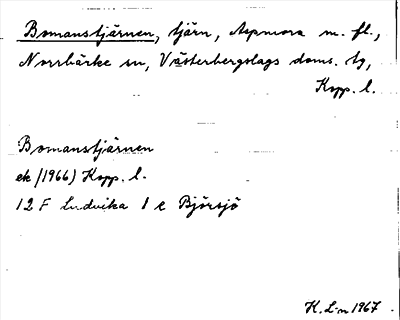 Bomanstjärnen, tjärn, Aspmora m. fl.,
Norrbärke sn, Västerbergslags doms. tg,
Kopp. l.
Bomanstjärnen
ek (1966) Kopp. l.
12 F Ludvika 1 e Björsjö
K. L-n 1967